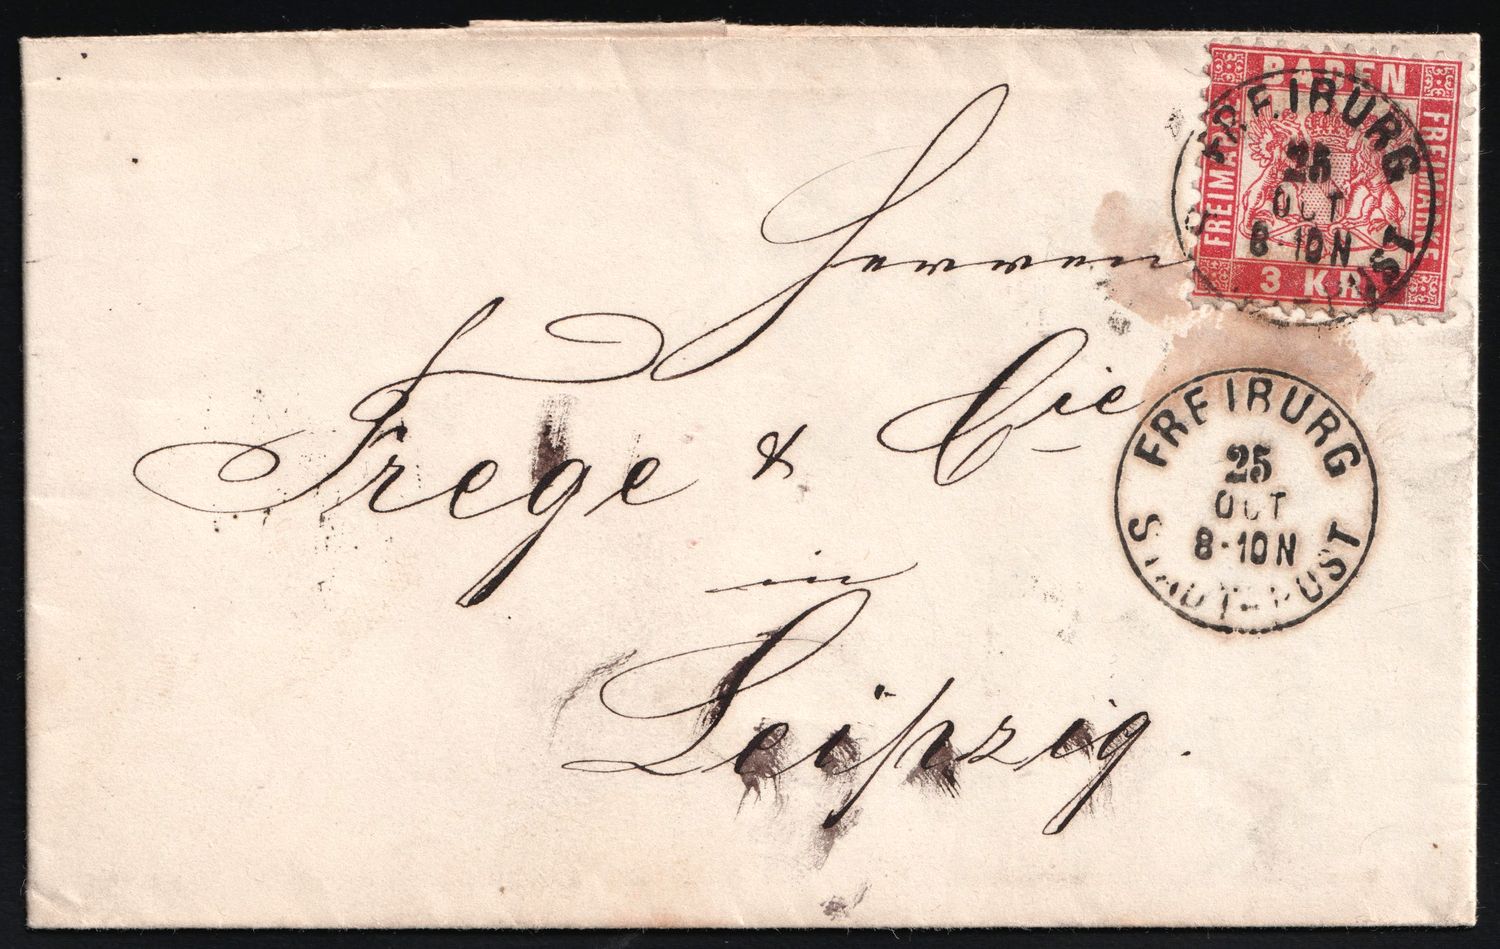 BADEN
FREIMARKE
FREIMARKE
3 KR.
FREIBURG
25
OCT
8-10N
STADT-POST
Herren
Frege & Cie
in
Leipzig.
FREIBURG
25
OCT
8-10N
STADT-POST